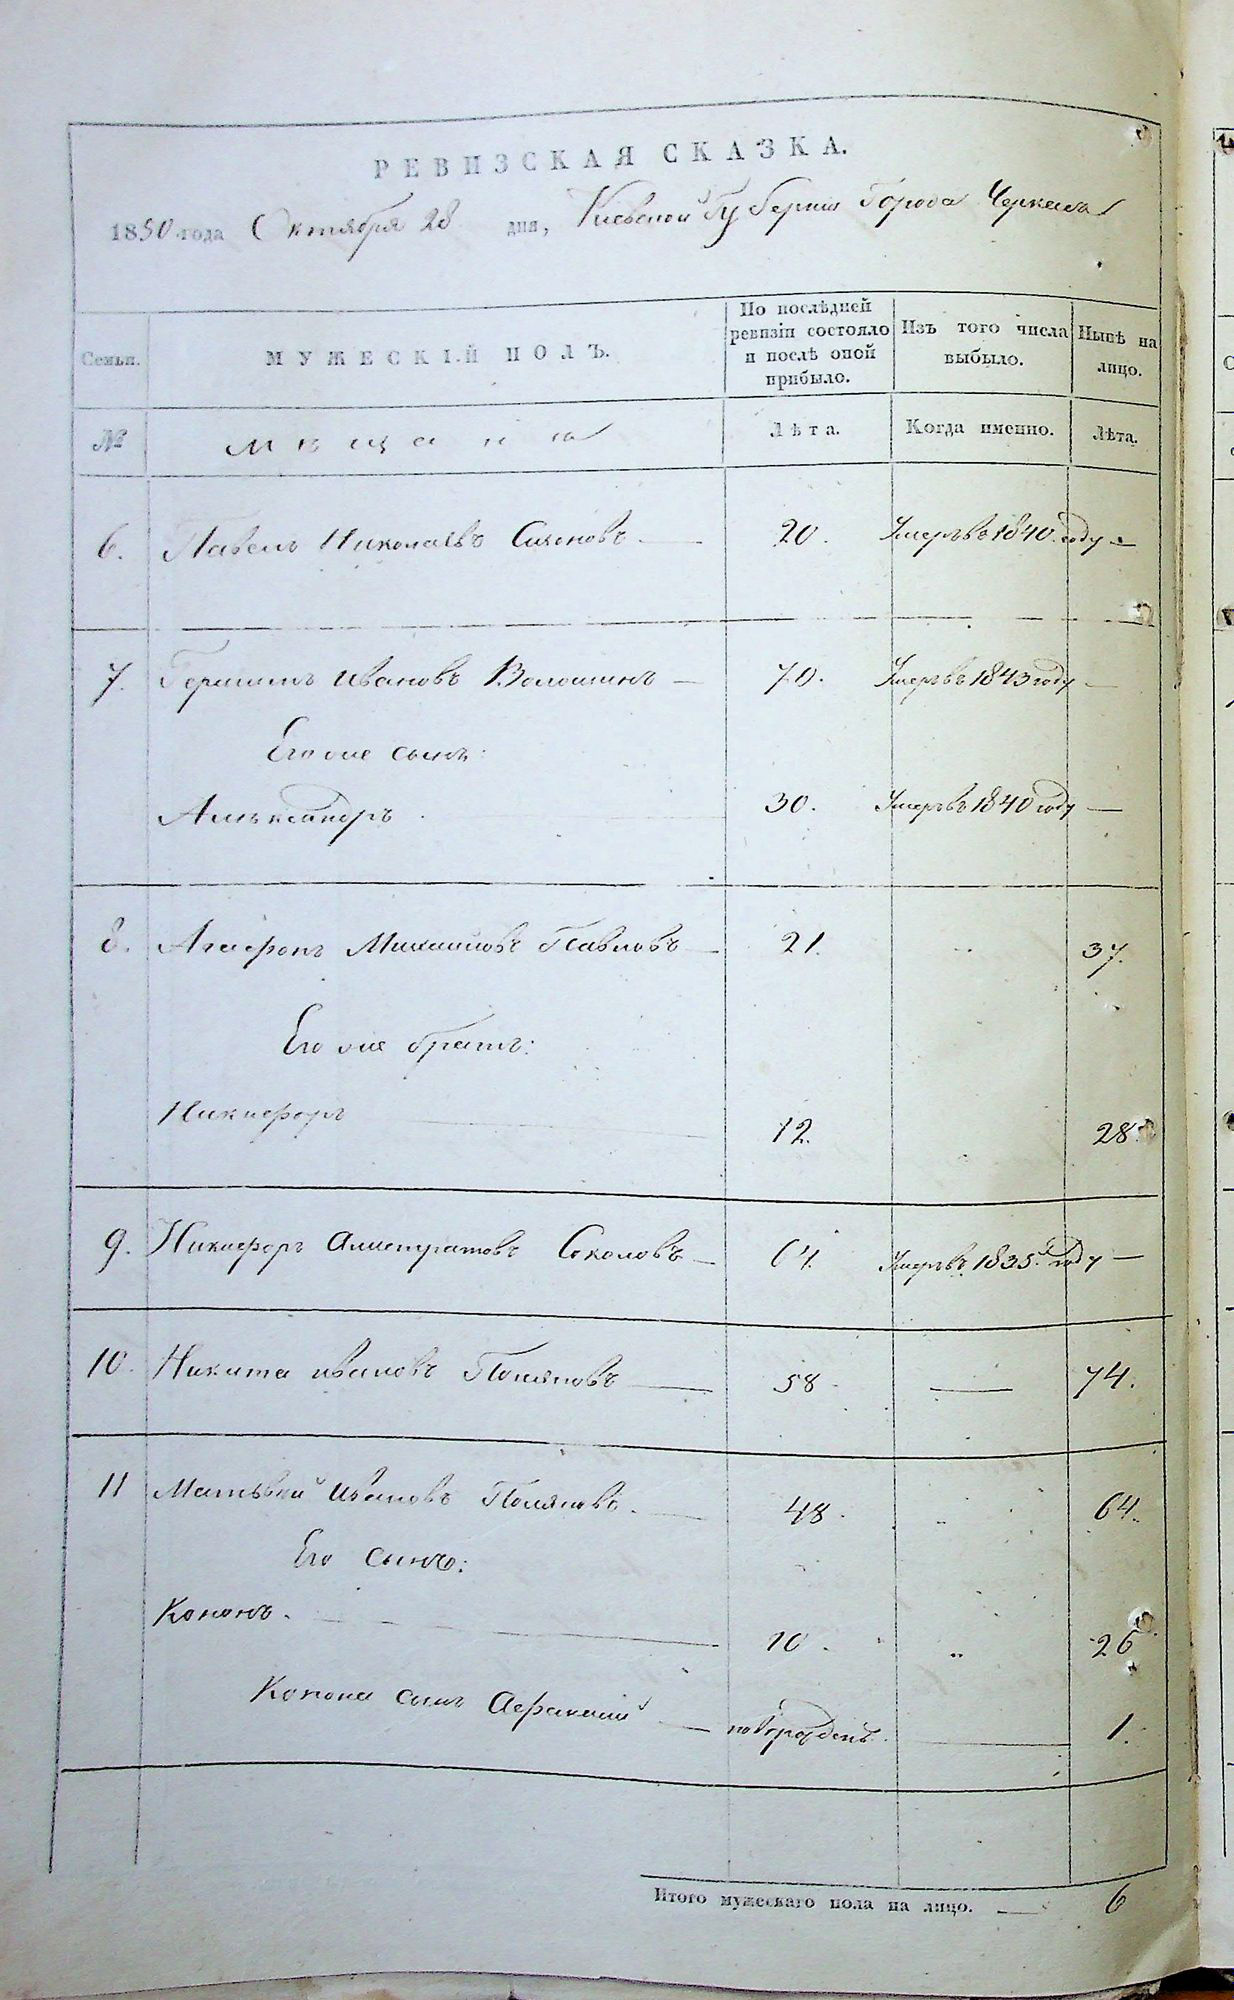 РЕВИЗСКАЯ СКАЗКА.
1850 года Октября 28 дня, Киевской Губернии Города Черкасъ
Семьи.
МУЖЕСКІЙ ПОЛЪ.
По послѣдней ревизіи состояло и послѣ оной прибыло.
Изъ того числа выбыло.
Нынѣ на лицо.
№
мѣщанъ
Лѣта.
Когда именно.
Лѣта.
6. Павелъ Николаевъ 20. Умеръ въ 1840 году —
7. Иванова Волошинъ — 70. Умеръ въ 1843 году —
Его же сынъ:
Александръ 30. Умеръ въ 1840 году —
8. Агафонъ Михайловъ Павловъ — 21. 37.
Его же братъ:
Никифоръ 12. 28.
9. Никифоръ Соколовъ — 64. Умеръ въ 1835 году —
10. Никита Ивановъ Поляковъ — 58 — 74.
11 Матвѣй Ивановъ Поляковъ. — 48. „ 64.
Его сынъ:
Кононъ. — 10. „ 26
Конона сынъ Афанасій — новорожденъ. — 1.
Итого мужескаго пола на лицо. — 6